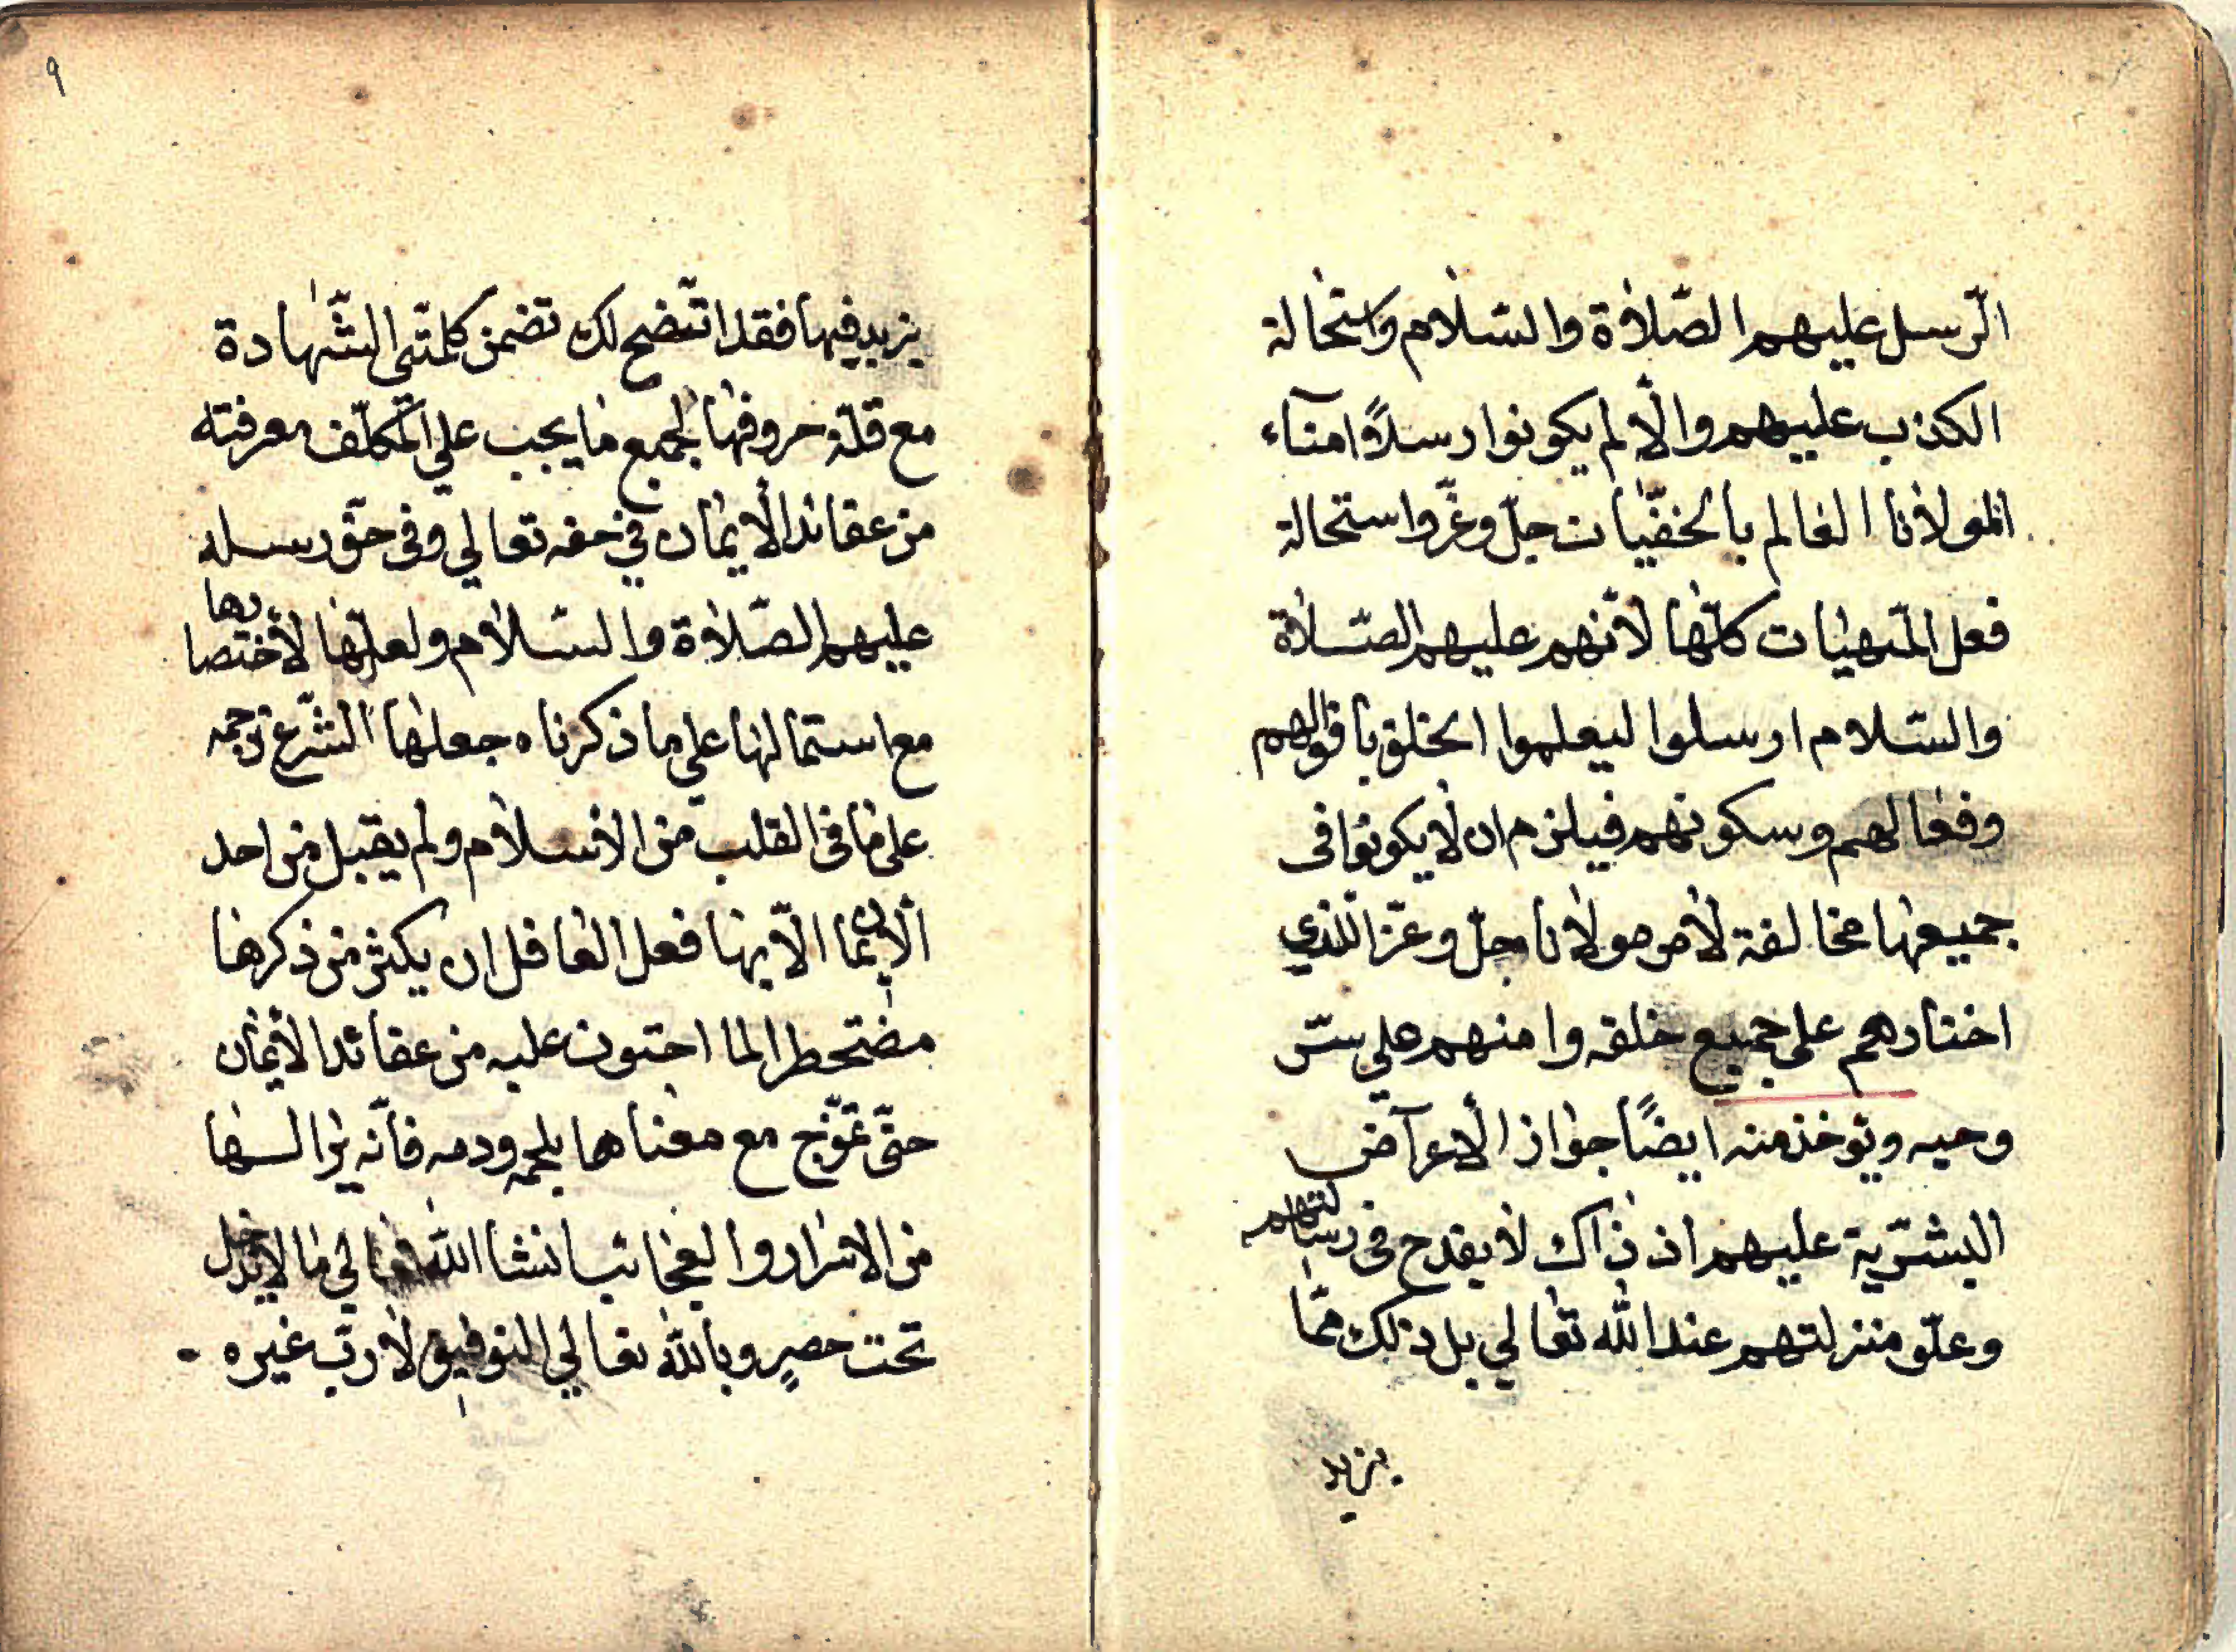 الرّسل عليهم الصّلاة والسّلام واستحالة
الكذب عليهم والّا لم يكونوا رسلًا امنآء
لمولانا العالم بالخفيّات جلّ وعزّ واستحالة
فعل المنهيّات كلّها لانّهم عليهم الصّلاة
والسّلام ارسلوا ليعلموا الخلق باقوالهم
وفعالهم وسكوتهم فيلزم ان لا يكونوا فى
جميعها مخالفة لامر مولانا جلّ وعزّ الّذي
اختارهم على جميع خلقه وامنهم علي سرّ
وحيه ويوخذ منه ايضًا جواز الاعرآض
البشريّة عليهم اذ ذاك لا يقدح فى رسالتهم
وعلّو منزلتهم عند الله تعالي بل ذلك ممّا
يزيد
٩
يزيد فيها فقد اتّضح لك تضمن كلمتي الشّهادة
مع قلّة حروفها لجميع ما يجب علي المكلّف معرفته
من عقائد الايمان في حقه تعالي وفى حقّ رسله
عليهم الصّلاة والسّلام ولعلّها لاختصارها
مع استمالها علي ما ذكرناه جعلها الشّرع ترجمه
على ما فى القلب من الاسلام ولم يقبل من احد
الايمان الّا بها فعل العاقل ان يكثر من ذكرها
مضتحطرا لما احتوت عليه من عقائد الايمان
حتّى تمّزج مع معناها بلحمه ودمه فانّه يرا لسها
من الاسرار والعجائب انشا الله تعالي ما لا يدخل
تحت حصرٍ وبالله تعالي التوفيق لا ربّ غيره